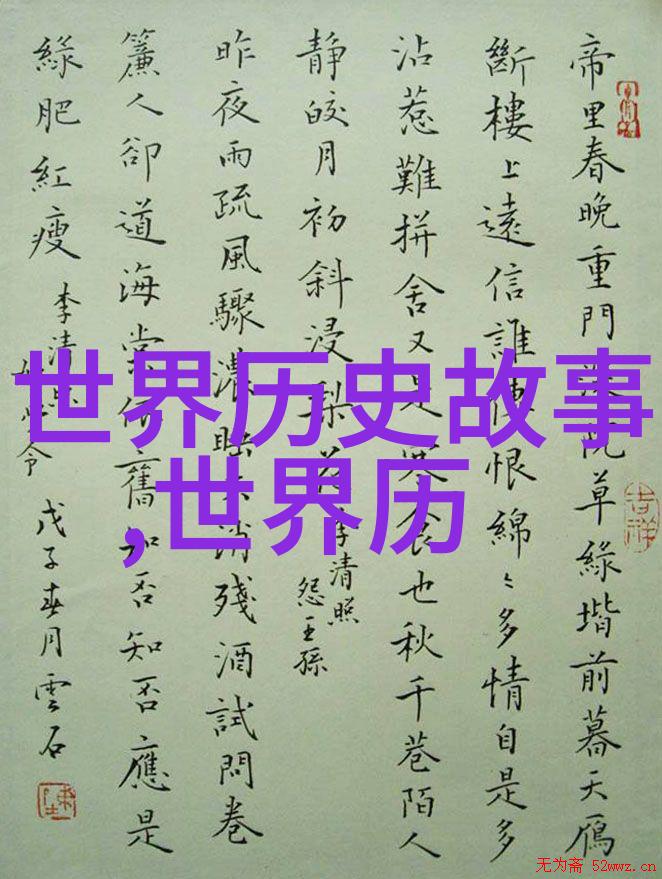 帝里春晚重門深院草綠堦前暮天鴈
斷樓上遠信誰傳恨綿々多情自是多
沾惹難拼舍又是寒食也秋千巷陌人
靜皎月初斜浸梨花 李清照
怨王孫
昨夜雨疏風驟濃睡不消殘酒試問卷
簾人卻道海棠依舊知否知否應是
綠肥紅瘦 李清照
如夢令 戊子春月雲石
吉祥
世界历史故事
,世界历
无为斋 52wwz.cn